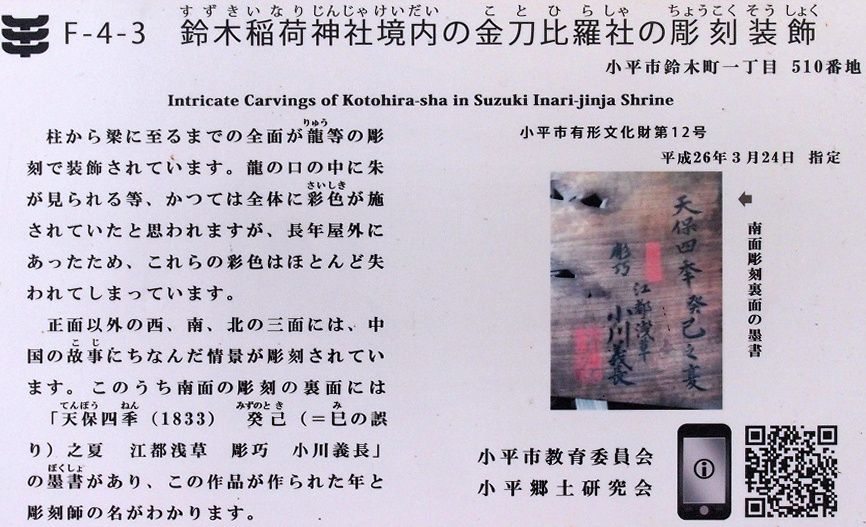 F-4-3 鈴木稲荷神社境内の金刀比羅社の彫刻装飾
すずきいなりじんじゃけいだい ことひらしゃ ちょうこくそうしょく
小平市鈴木町一丁目 510番地
Intricate Carvings of Kotohira-sha in Suzuki Inari-jinja Shrine
柱から梁に至るまでの全面が龍等の彫
りゅう
刻で装飾されています。龍の口の中に朱
が見られる等、かつては全体に彩色が施
さいしき
されていたと思われますが、長年屋外に
あったため、これらの彩色はほとんど失
われてしまっています。
正面以外の西、南、北の三面には、中
国の故事にちなんだ情景が彫刻されてい
こじ
ます。このうち南面の彫刻の裏面には
「天保四季（1833） 癸己（＝巳の誤
てんぽう ねん みずのとき み
り）之夏 江都浅草 彫巧 小川義長」
の墨書があり、この作品が作られた年と
ぼくしょ
彫刻師の名がわかります。
小平市有形文化財第12号
平成26年3月24日 指定
天保四季癸己之夏
江都浅草
彫巧 小川義長
南面彫刻裏面の墨書
小平市教育委員会
小平郷土研究会